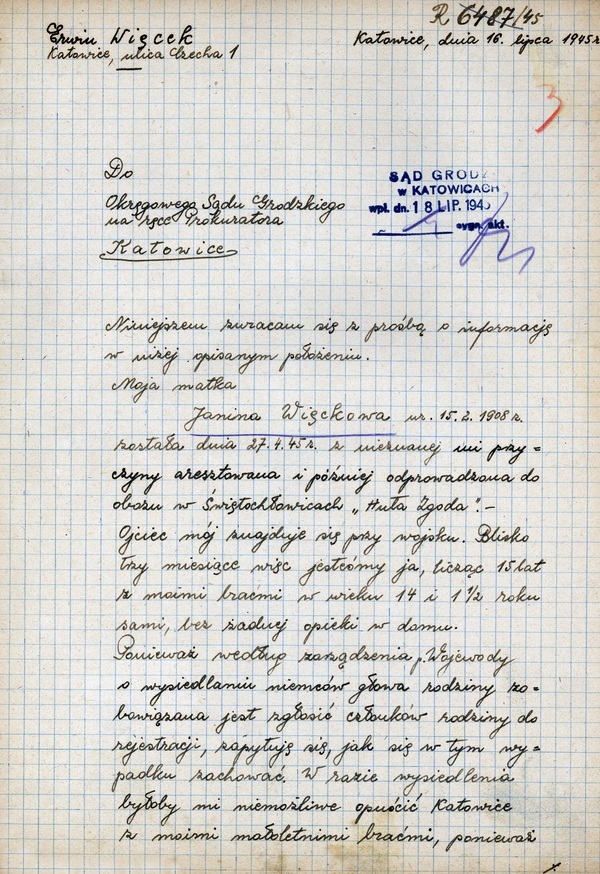 R 6487/45
Erwin Więcek
Katowice, ulica Czecha 1
Katowice, dnia 16. lipca 1945 r
3
Do
Okręgowego Sądu Grodzkiego
na ręce Prokuratora
Katowice
SĄD GRODZ
w KATOWICACH
wpł. dn. 18 LIP. 1945
sygn. akt.
Niniejszem zwracam się z prośbą o informację
w niżej opisanym położeniu.
Moja matka
Janina Więckowa ur. 15.2.1908 r.
została dnia 27.4.45 r. z nieznanej mi przy=
czyny aresztowana i później odprowadzona do
obozu w Świętochłowicach „Huta Zgoda".-
Ojciec mój znajduje się przy wojsku. Blisko
trzy miesiące więc jesteśmy ja, licząc 15 lat
z moimi braćmi w wieku 14 i 1 1/2 roku
sami, bez żadnej opieki w domu.
Ponieważ według zarządzenia p. Wojewody
o wysiedlaniu niemców głowa rodziny zo=
bowiązana jest zgłosić członków rodziny do
rejestracji, zapytuję się, jak się w tym wy=
padku zachować. W razie wysiedlenia
byłoby mi niemożliwe opuścić Katowice
z moimi małoletnimi braćmi, ponieważ